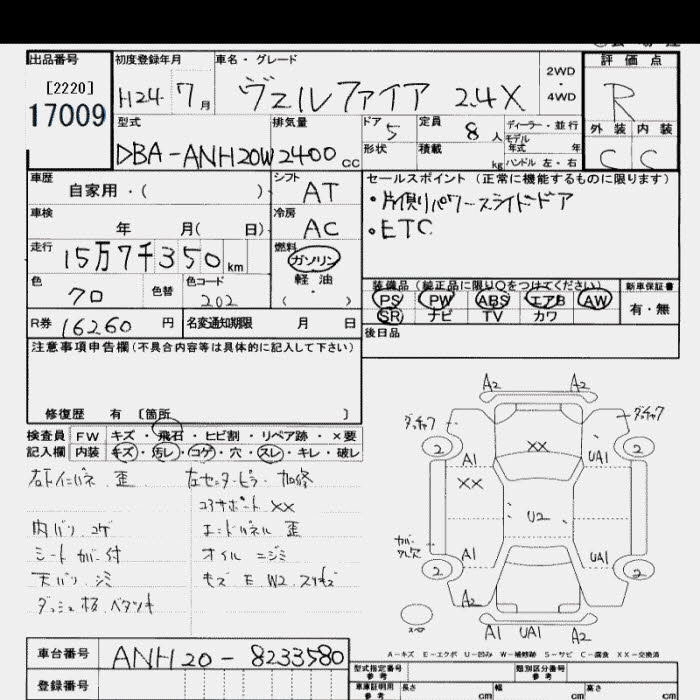 出品番号 初度登録年月 車名・グレード 2WD・4WD 評価点
[2220] 17009 H24 7月 ヴェルファイア 2.4X R
型式 排気量 ドア 定員 ディーラー・並行 外装 内装
DBA-ANH20W 2400cc 5 8人 モデル年式 年 C C
形状 積載 kg ハンドル 左・右
車歴 シフト セールスポイント(正常に機能するものに限ります)
自家用・( ) AT ・片側パワースライドドア
車検 冷房 ・ETC
年 月( 日) AC
走行 燃料
15万7千350km ガソリン
軽油
( ・ )
色 色替 色コード 装備品(純正品に限り○をつけてください) 新車保証書
クロ 202 PS PW ABS エアB AW 有・無
R券 16260円 名変通知期限 月 日 SR ナビ TV カワ
後日品
注意事項申告欄(不具合内容等は具体的に記入して下さい)
修復歴 有 [箇所 ]
検査員 FW キズ・飛石・ヒビ割・リペア跡・×要
記入欄 内装 キズ・汚レ・コゲ・穴・スレ・キレ・破レ
右下インパネ 歪 左センターピラー 加修
コアサポート XX
内バリ コゲ エンドパネル 歪
シート カバー付 オイル ニジミ
天バリ シミ キズ E W2 スリキズ
ダッシュ板 ベタツキ
A2 A2
2 XX 2
A1 UA1
XX
U2
A1 UA1
2 2
A2 A2
スペア A1 UA1 A2
A-キズ E-エクボ U-凹み W-補修跡 S-サビ C-腐食 XX-交換済
車台番号 ANH20-8233580 型式指定番号 参考 類別区分番号 参考
登録番号 車庫証明用 参考 長さ cm 幅 cm 高さ cm